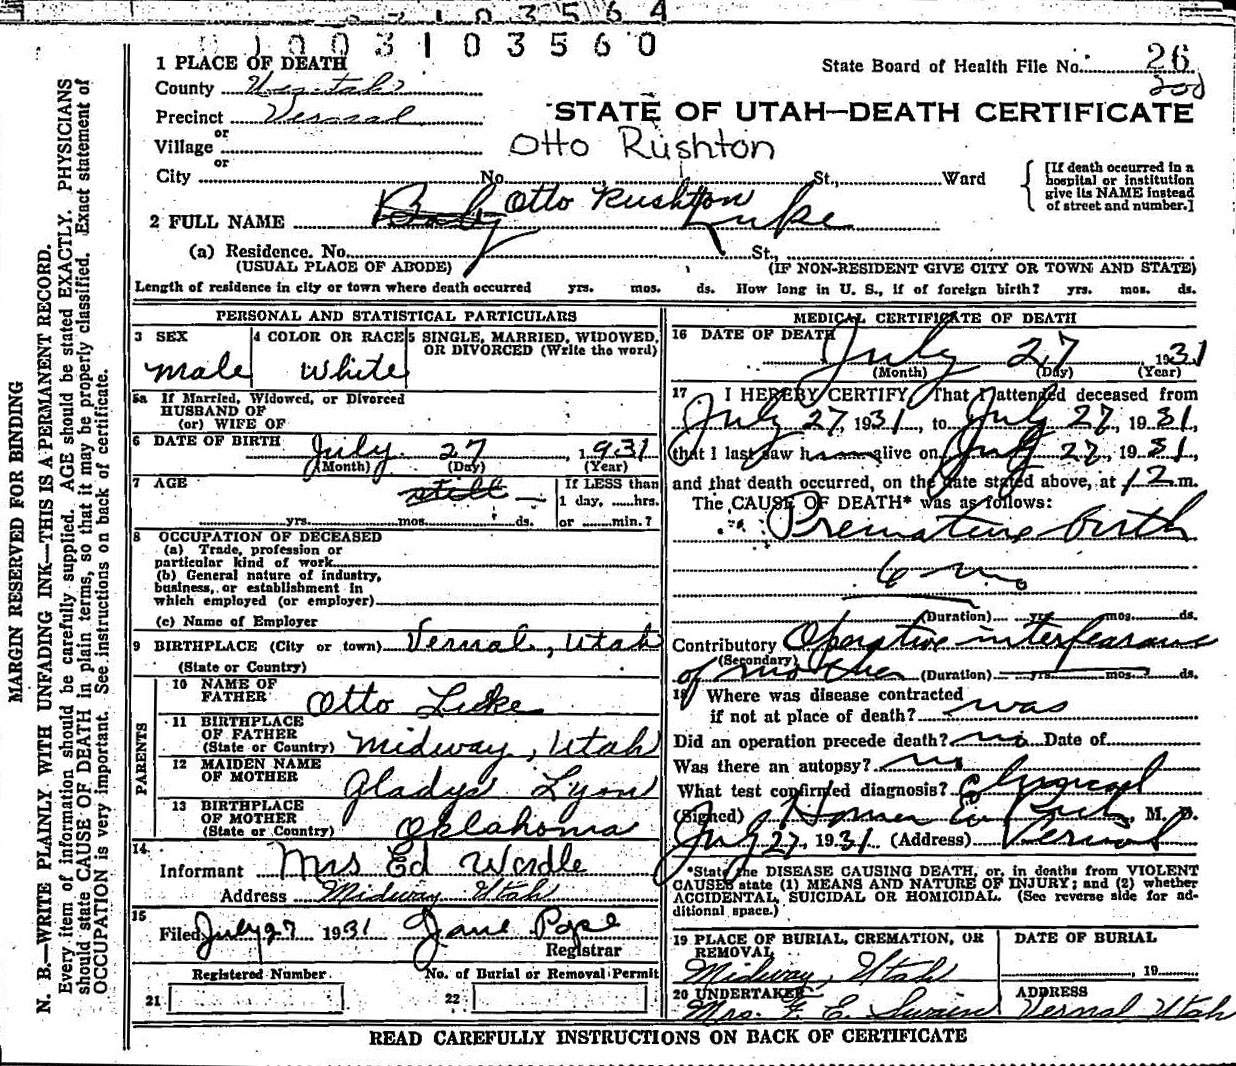 0 1 0 0 3 1 0 3 5 6 0
1 PLACE OF DEATH
State Board of Health File No. 26
County Uintah
200
Precinct Vernal
STATE OF UTAH—DEATH CERTIFICATE
or
Village
Otto Rushton
or
City No. St., Ward
[If death occurred in a hospital or institution give its NAME instead of street and number.]
Otto Rushton
2 FULL NAME Baby Luke
(a) Residence. No. St.,
(USUAL PLACE OF ABODE) (IF NON-RESIDENT GIVE CITY OR TOWN AND STATE)
Length of residence in city or town where death occurred yrs. mos. ds. How long in U. S., if of foreign birth? yrs. mos. ds.
PERSONAL AND STATISTICAL PARTICULARS
3 SEX
male
4 COLOR OR RACE
White
5 SINGLE, MARRIED, WIDOWED,
OR DIVORCED (Write the word)
5a If Married, Widowed, or Divorced
HUSBAND OF
(or) WIFE OF
6 DATE OF BIRTH July 27, 1931
(Month) (Day) (Year)
7 AGE still
yrs. mos. ds.
If LESS than
1 day, ......hrs.
or ........min.?
8 OCCUPATION OF DECEASED
(a) Trade, profession or
particular kind of work
(b) General nature of industry,
business, or establishment in
which employed (or employer)
(c) Name of Employer
9 BIRTHPLACE (City or town) Vernal, Utah
(State or Country)
PARENTS
10 NAME OF
FATHER Otto Luke
11 BIRTHPLACE
OF FATHER
(State or Country) Midway, Utah
12 MAIDEN NAME
OF MOTHER Gladys Lyon
13 BIRTHPLACE
OF MOTHER
(State or Country) Oklahoma
14
Informant Mrs Ed Wardle
Address Midway Utah
15
Filed July 27 1931 Jane Pope
Registrar
Registered Number No. of Burial or Removal Permit
21 22
MEDICAL CERTIFICATE OF DEATH
16 DATE OF DEATH
July 27, 1931
(Month) (Day) (Year)
17 I HEREBY CERTIFY That I attended deceased from
July 27, 1931, to July 27, 1931,
that I last saw h alive on July 27, 1931,
and that death occurred, on the date stated above, at 12 m.
The CAUSE OF DEATH* was as follows:
Premature birth
6 mo
(Duration) yrs. mos. ds.
Contributory Operative interfearance
(Secondary)
of mother (Duration) yrs. mos. ds.
18 Where was disease contracted
if not at place of death? was
Did an operation precede death? no Date of
Was there an autopsy? no
What test confirmed diagnosis?
(Signed) Homer E. M. D.
July 27, 1931 (Address) Vernal
*State the DISEASE CAUSING DEATH, or, in deaths from VIOLENT
CAUSES state (1) MEANS AND NATURE OF INJURY; and (2) whether
ACCIDENTAL, SUICIDAL OR HOMICIDAL. (See reverse side for ad-
ditional space.)
19 PLACE OF BURIAL, CREMATION, OR
REMOVAL
Midway, Utah
DATE OF BURIAL
, 19
20 UNDERTAKER
Mrs. F. E. Swain
ADDRESS
Vernal Utah
READ CAREFULLY INSTRUCTIONS ON BACK OF CERTIFICATE
MARGIN RESERVED FOR BINDING
N. B.—WRITE PLAINLY WITH UNFADING INK—THIS IS A PERMANENT RECORD.
Every item of information should be carefully supplied. AGE should be stated EXACTLY. PHYSICIANS
should state CAUSE OF DEATH in plain terms, so that it may be properly classified. Exact statement of
OCCUPATION is very important. See instructions on back of certificate.